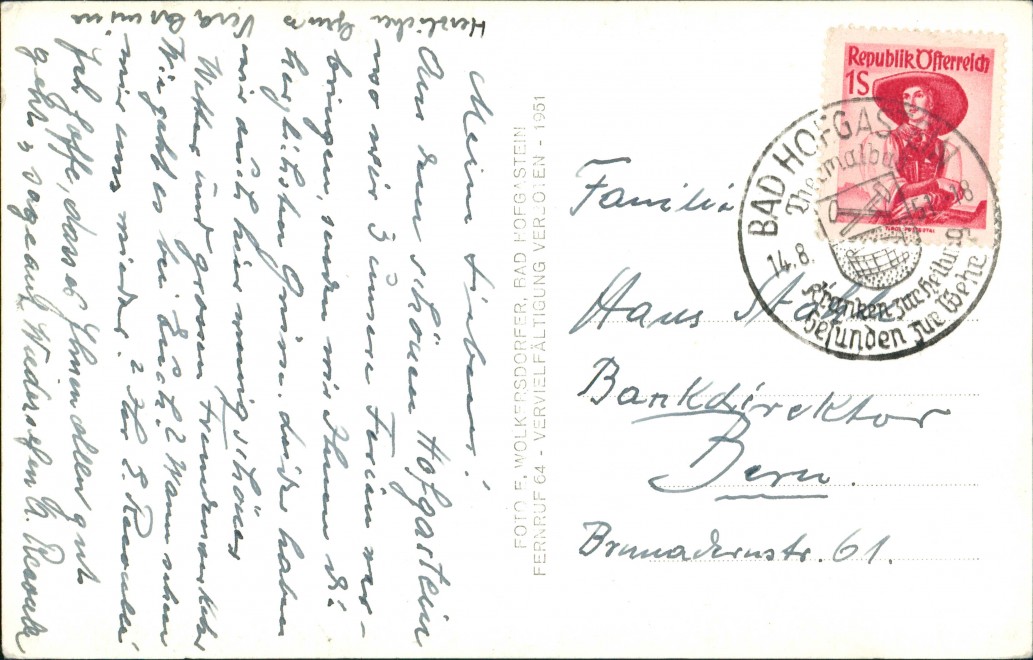 Meine Lieben!
Aus dem schönen Hofgastein
wo wir 3 unsere Ferien ver-
bringen, senden wir Ihnen di
herzlichsten Grüsse. Leider haben
wir auch hier wenig schönes
Wetter und grossen Fremdenverkehr
Wie geht es bei Euch? Wann sehen
wir uns wieder? Ihr
Ich hoffe, dass es Ihnen allen gut
geht u. sage auf Wiedersehen
Herzliche Gruss Vera
FOTO F. WOLKERSDORFER, BAD HOFGASTEIN
FERNRUF 64 - VERVIELFÄLTIGUNG VERBOTEN - 1951
Republik Österreich
1S
BAD HOFGASTEIN
Thermalbad
14.8.
Kranken zur Heilung
Gesunden zur Wehr
Familie
Hans
Bankdirektor
Bern.
Brunadernstr. 61.